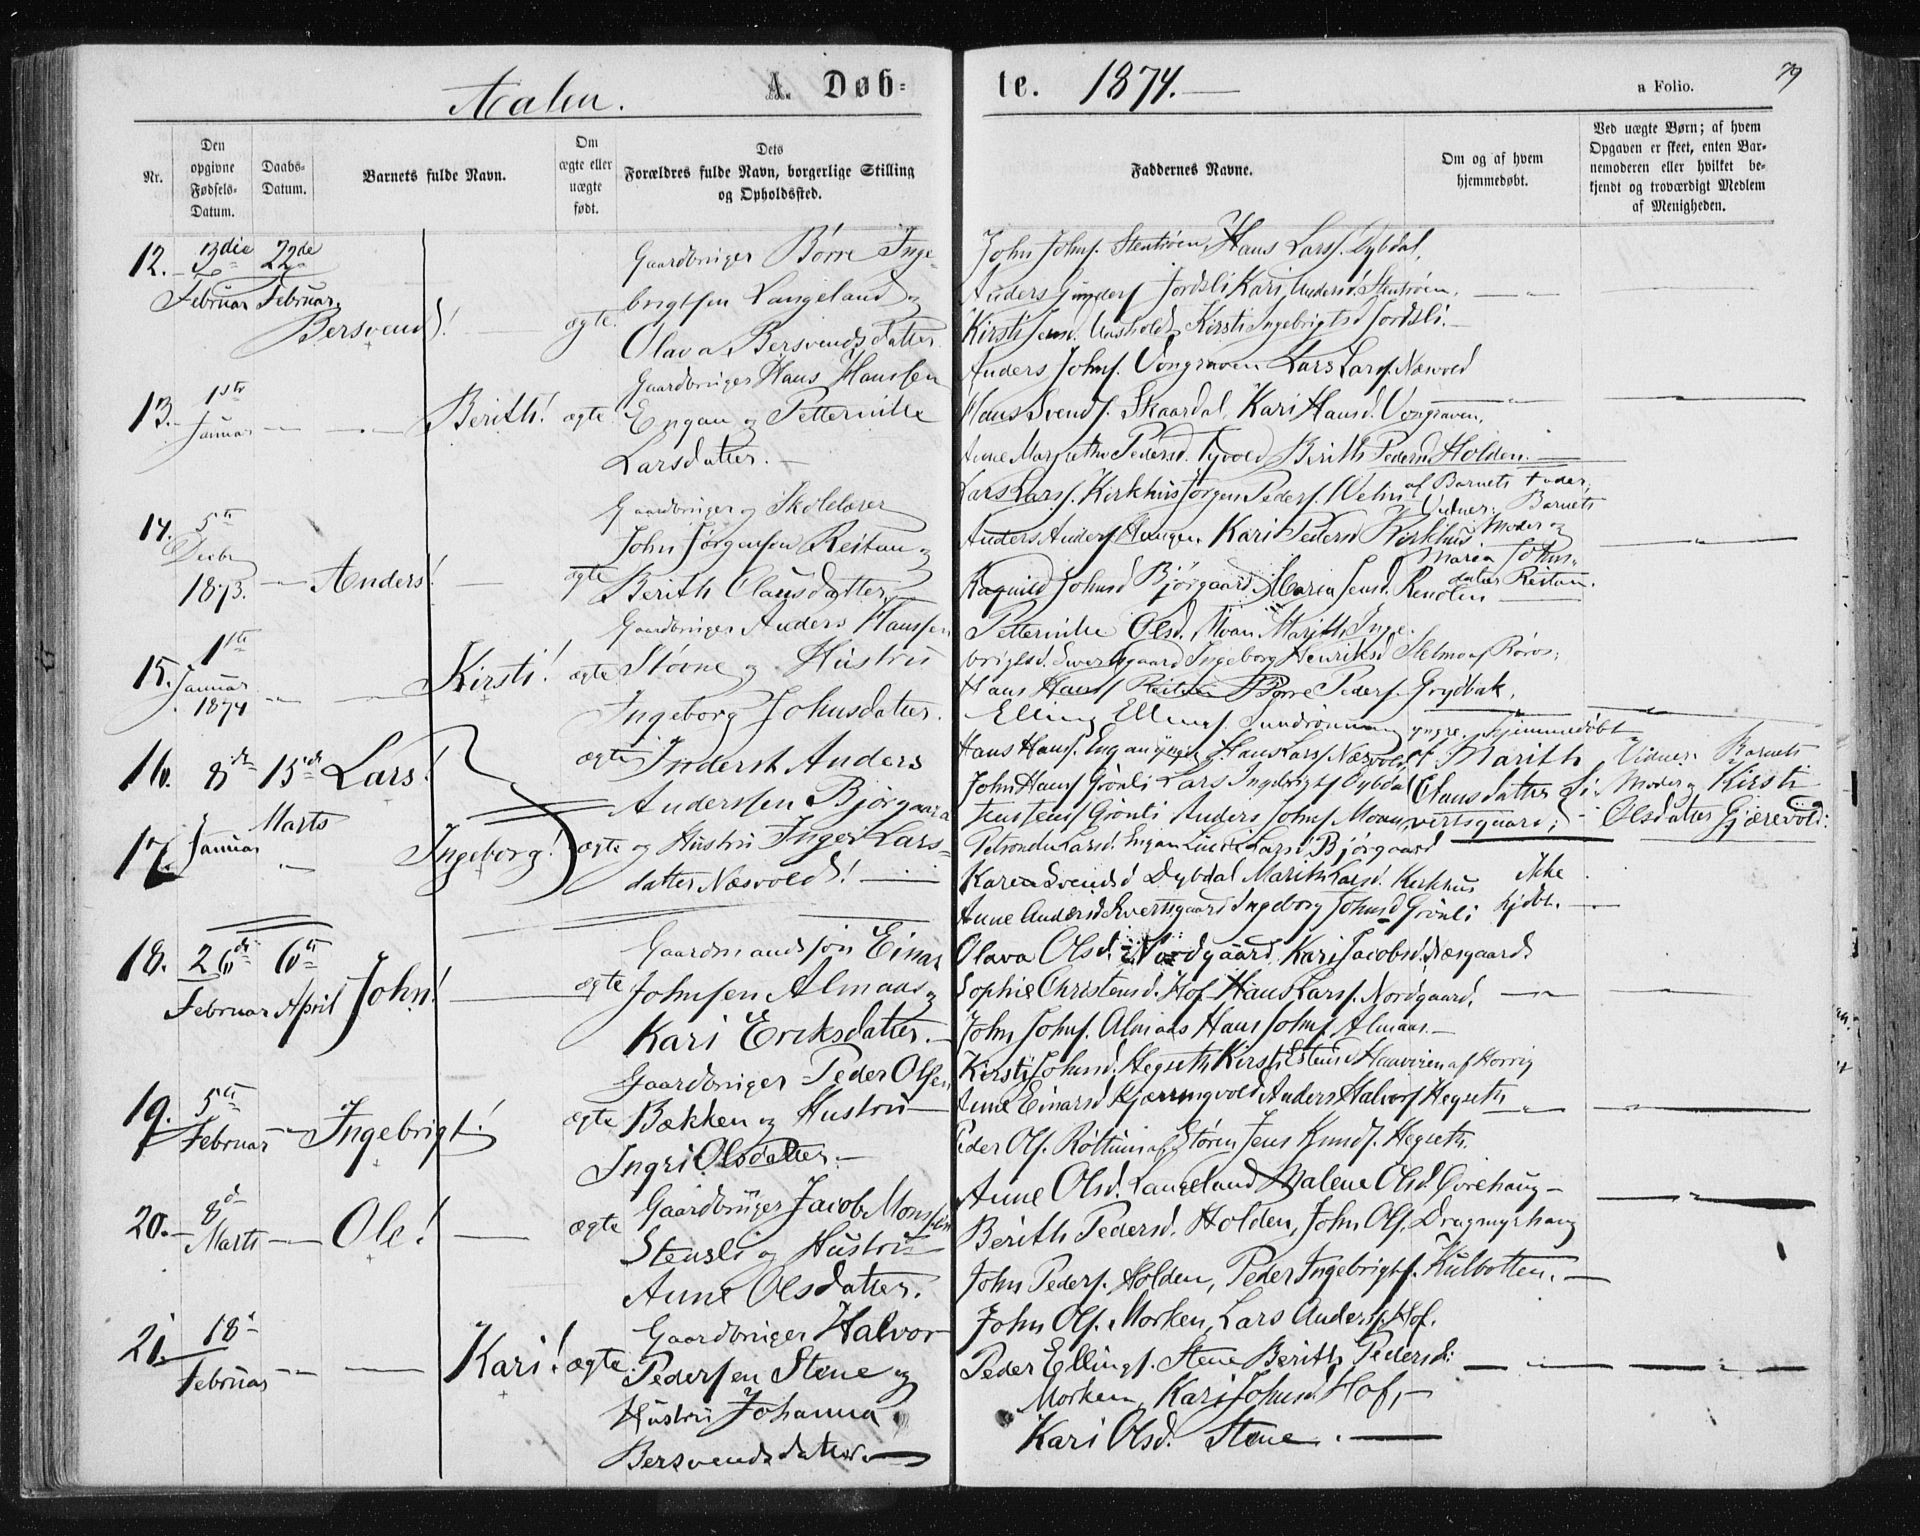 Aalen. A. Døb-
te. 1874. a Folio. 79
Nr.
Den opgivne Fødsels-Datum.
Daabs-Datum.
Barnets fulde Navn.
Om ægte eller uægte født.
Dets Forældres fulde Navn, borgerlige Stilling og Opholdssted.
Faddernes Navne.
Om og af hvem hjemmedøbt.
Ved uægte Børn; af hvem Opgaven er skeet, enten Bar-
nemoderen eller hvilket be-
kjendt og troværdigt Medlem
af Menigheden.
12. 13die Februar 22de Februar
Bersvend! ægte.
Gaardbruger Børre Inge-
brigtsen Langeland og
Olava Bersvendsdatter.
John Johns. Stentrøen, Hans Lars. Dybdal,
Anders Gunders. Fordsli Kari Andersd. Stentrøen.
Kirsti Jensd. Kirsti Ingebrigtsd. Fordsli.
13. 1ste Januar
Berith! ægte
Gaardbruger Hans Hanssen
Engan og Petternille
Larsdatter.
Anders Johns. Vongraven Lars Lars. Næsvold
Hans Svends. Skaardal, Kari Hansd. Vongraven,
Anne Margrethe Pedersd. Tyvold Berith Pedersd. Holden.
14. 5te Decbr 1873.
Anders! ægte
Gaardbruger og Skolelærer
John Jørgensen Reitan og
Berith Clausdatter.
Lars Lars. Kirkhus Jørgen Peders. af Barnets Fader,
Anders Anders. Haugen Kari Pedersd. Kirkhus
Ragnild Johnsd. Bjørgaard Maria Jensd. Renolen
Vidner: Barnets
Moder og
Maria Johns-
datter Reitan.
15. 1ste Januar 1874
Kirsti! ægte
Gaardbruger Anders Hanssen
Støvne og Hustru
Ingeborg Johnsdatter.
Petternille Olsd. Moan, Marith Inge-
brigtsd. Ingeborg Henriksd. af Røros;
Hans Hans. Reitan Børre Peders. Grydbak,
16. 8de 15de Lars! ægte
17. Januar Marts
Ingeborg! ægte
Inderst Anders
Anderssen Bjørgaard
og Hustru Inger Lars-
datter Næsvold!
Elling Ellings. yngre. Hjemmedøbt
Hans Hans. Engan yngre, Hans Lars. Næsvold, af Marith
John Hans. Grønli Lars Ingebrigts. Dybdal Clausdatter Si-
Jens Jens. Grønli Anders Johns. Moan, vertsgaard;
Vidner: Barnets
Moder og Kirsti
Olsdatter Gjærevold:
Larsd. Engan Larsd. Bjørgaard
Karen Svendsd. Dybdal Marith Larsd. Kirkhus Ikke
Anne Andersd. Ingeborg Johnsd. Grønli hjdbt.
18. 26de Februar 6te April John! ægte
Gaardmandssøn Einar
Johnsen Almaas og
Kari Eriksdatter.
Olava Olsd. Nordgaard, Kari Jacobsd. Næsgaard
Sophie Christensd. Hof Hans Lars. Nordgaard,
John Johns. Almaas Hans Johns. Almaas.
19. 5te Februar Ingebrigt! ægte
Gaardbruger Peder Olsen
Bækken og Hustru
Ingri Olsdatter.
Kirsti Johnsd. Hegseth Kirsti Estensd.
Anne Einarsd. Kjærringvold Anders Halvors. Hegseth
Peder Ols. Røttum af Støren Jens Knuds. Hegseth.
20. 8de Marts Ole! ægte
Gaardbruger Jacob Monssen
Stensli og Hustru
Anne Olsdatter.
Anne Olsd. Langeland Malene Olsd. Girehaug
Berith Pedersd. Holden, John Ols. Dragmyrhaug
John Peders. Holden, Peder Ingebrigts. Kulbotten.
21. 18de Februar Kari! ægte.
Gaardbruger Halvor
Pedersen Stene og
Hustru Johanna
Bersvendsdatter.
John Ols. Morken, Lars Anders. Hof.
Peder Ellings. Stene Berith Pedersd:
Morken, Kari Johnsd. Hof,
Kari Olsd. Stene.